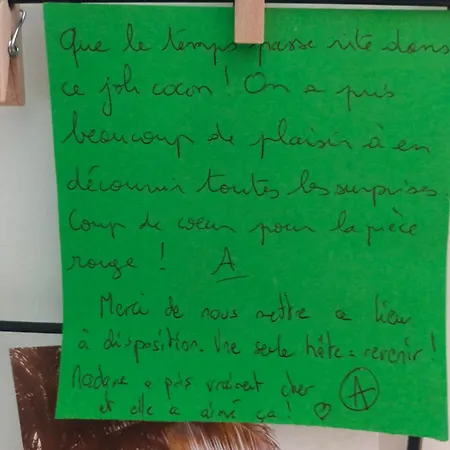 Que le temps passe vite dans
ce joli cocon ! On a pris
beaucoup de plaisir à en
découvrir toutes les surprises.
Coup de coeur pour la pièce
rouge ! A
Merci de nous mettre ce lieu
à disposition. Une seule hâte = revenir !
Madame a pris vraiment cher
et elle a aimé ça ! ♡ A